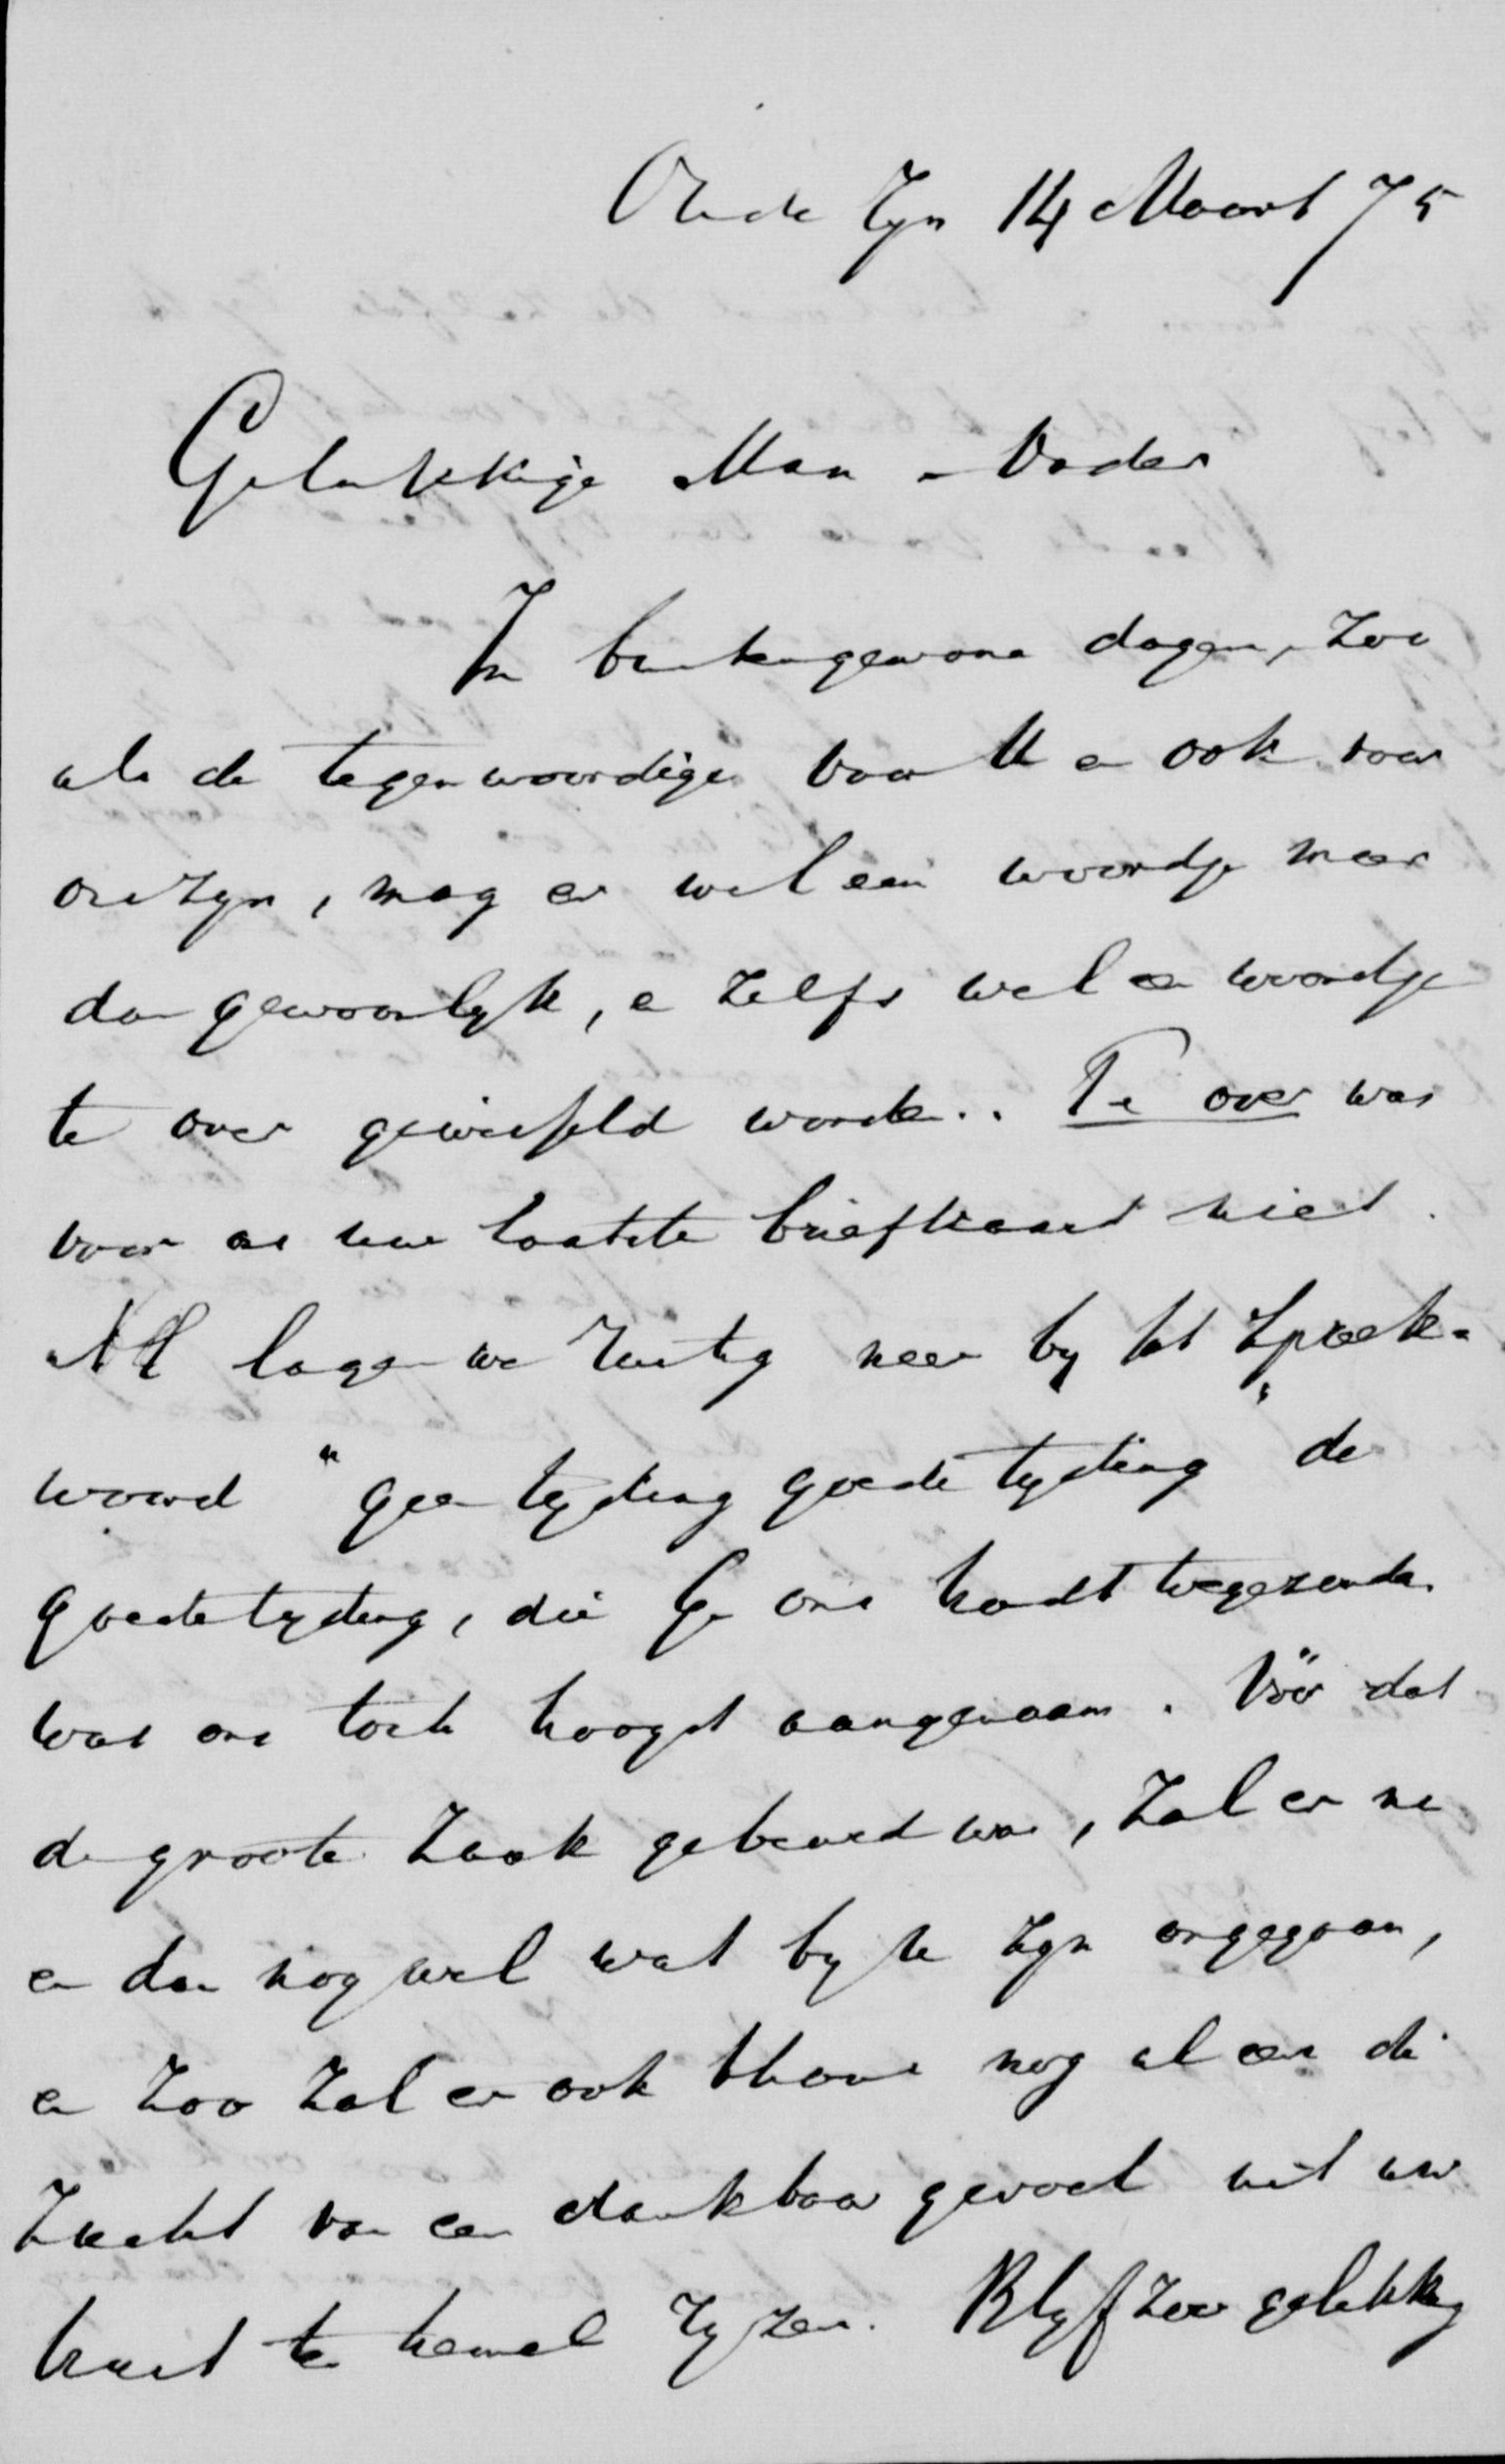 Oude Zyn 14 Maart 75
Gelukkige Man - Vader
In buitengewone dagen, zoo
als de tegenwoordige voor U en ook voor
ons zyn, mag er wel een woordje meer
dan gewoonlyk, en zelfs wel een woordje
te over gewisseld worden.. Te over was
voor ons uw laatste briefkaart niet.
Al lagen we rustig neer by het spreek-
woord "geen tyding goede tyding" de
goede tyding, die Ge ons hadt toegezonden
was ons toch hoogst aangenaam. Vóór dat
de groote zaak gebeurd was, zal er nu
en dan nog wel wat by te zyn omgegaan,
en zoo zal er ook thans nog al eens die
zucht van een dankbaar gevoel uit uw
hart te hemel ryzen. Blyf zoo gelukkig